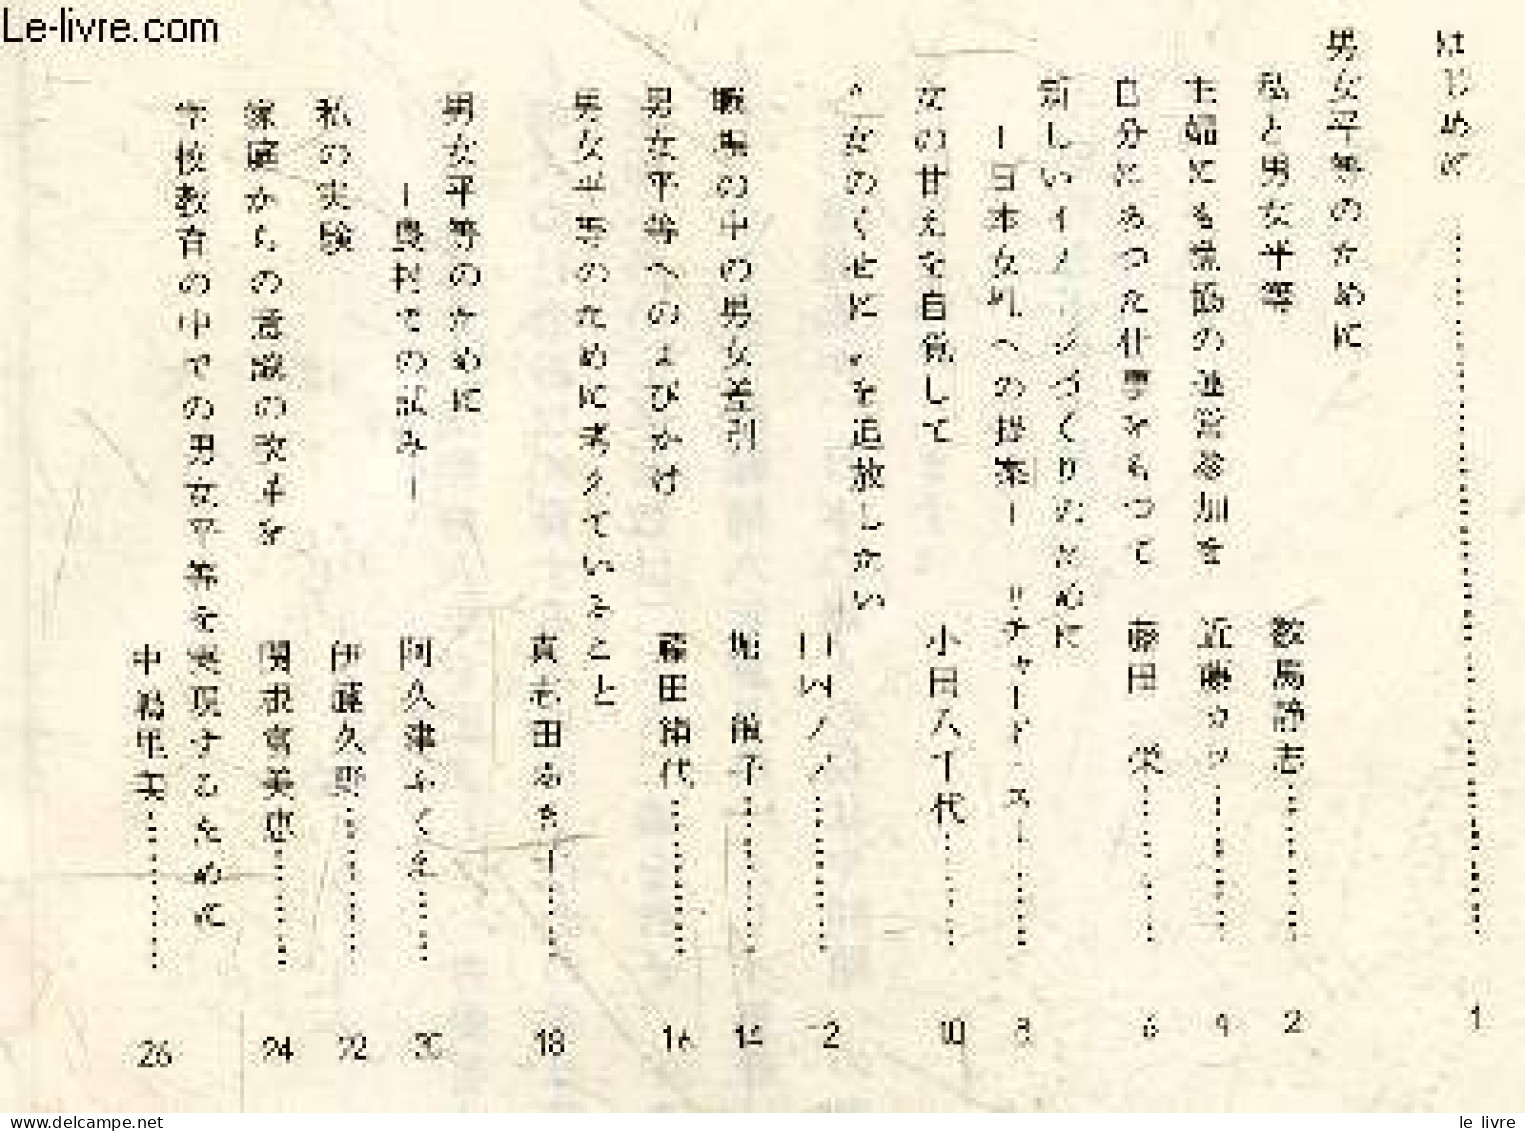 Le-livre.com
はじめに……………………1
男女平等のために
私と男女平等 数馬静志………2
主婦にも農協の運営参加を 近藤カツ………4
自分にあつた仕事をもつて 藤田 栄………6
新しいイメージづくりのために
ー日本女性への提案ー リチャード・ストー………8
女の甘えを自覚して 小田八千代………10
"女のくせに"を追放したい 山内ノブ………12
職場の中の男女差別 堀 敏子………14
男女平等へのよびかけ 藤田 代………16
男女平等のために考えていること
真志田ゆき子………18
男女平等のために
ー農村での試みー 阿久津ふくゑ………20
私の実験 伊藤久野………22
家庭からの意識の改革を 関根富美恵………24
学校教育の中での男女平等を実現するために
中嶋里美………26
www.le-livre.com
le livre